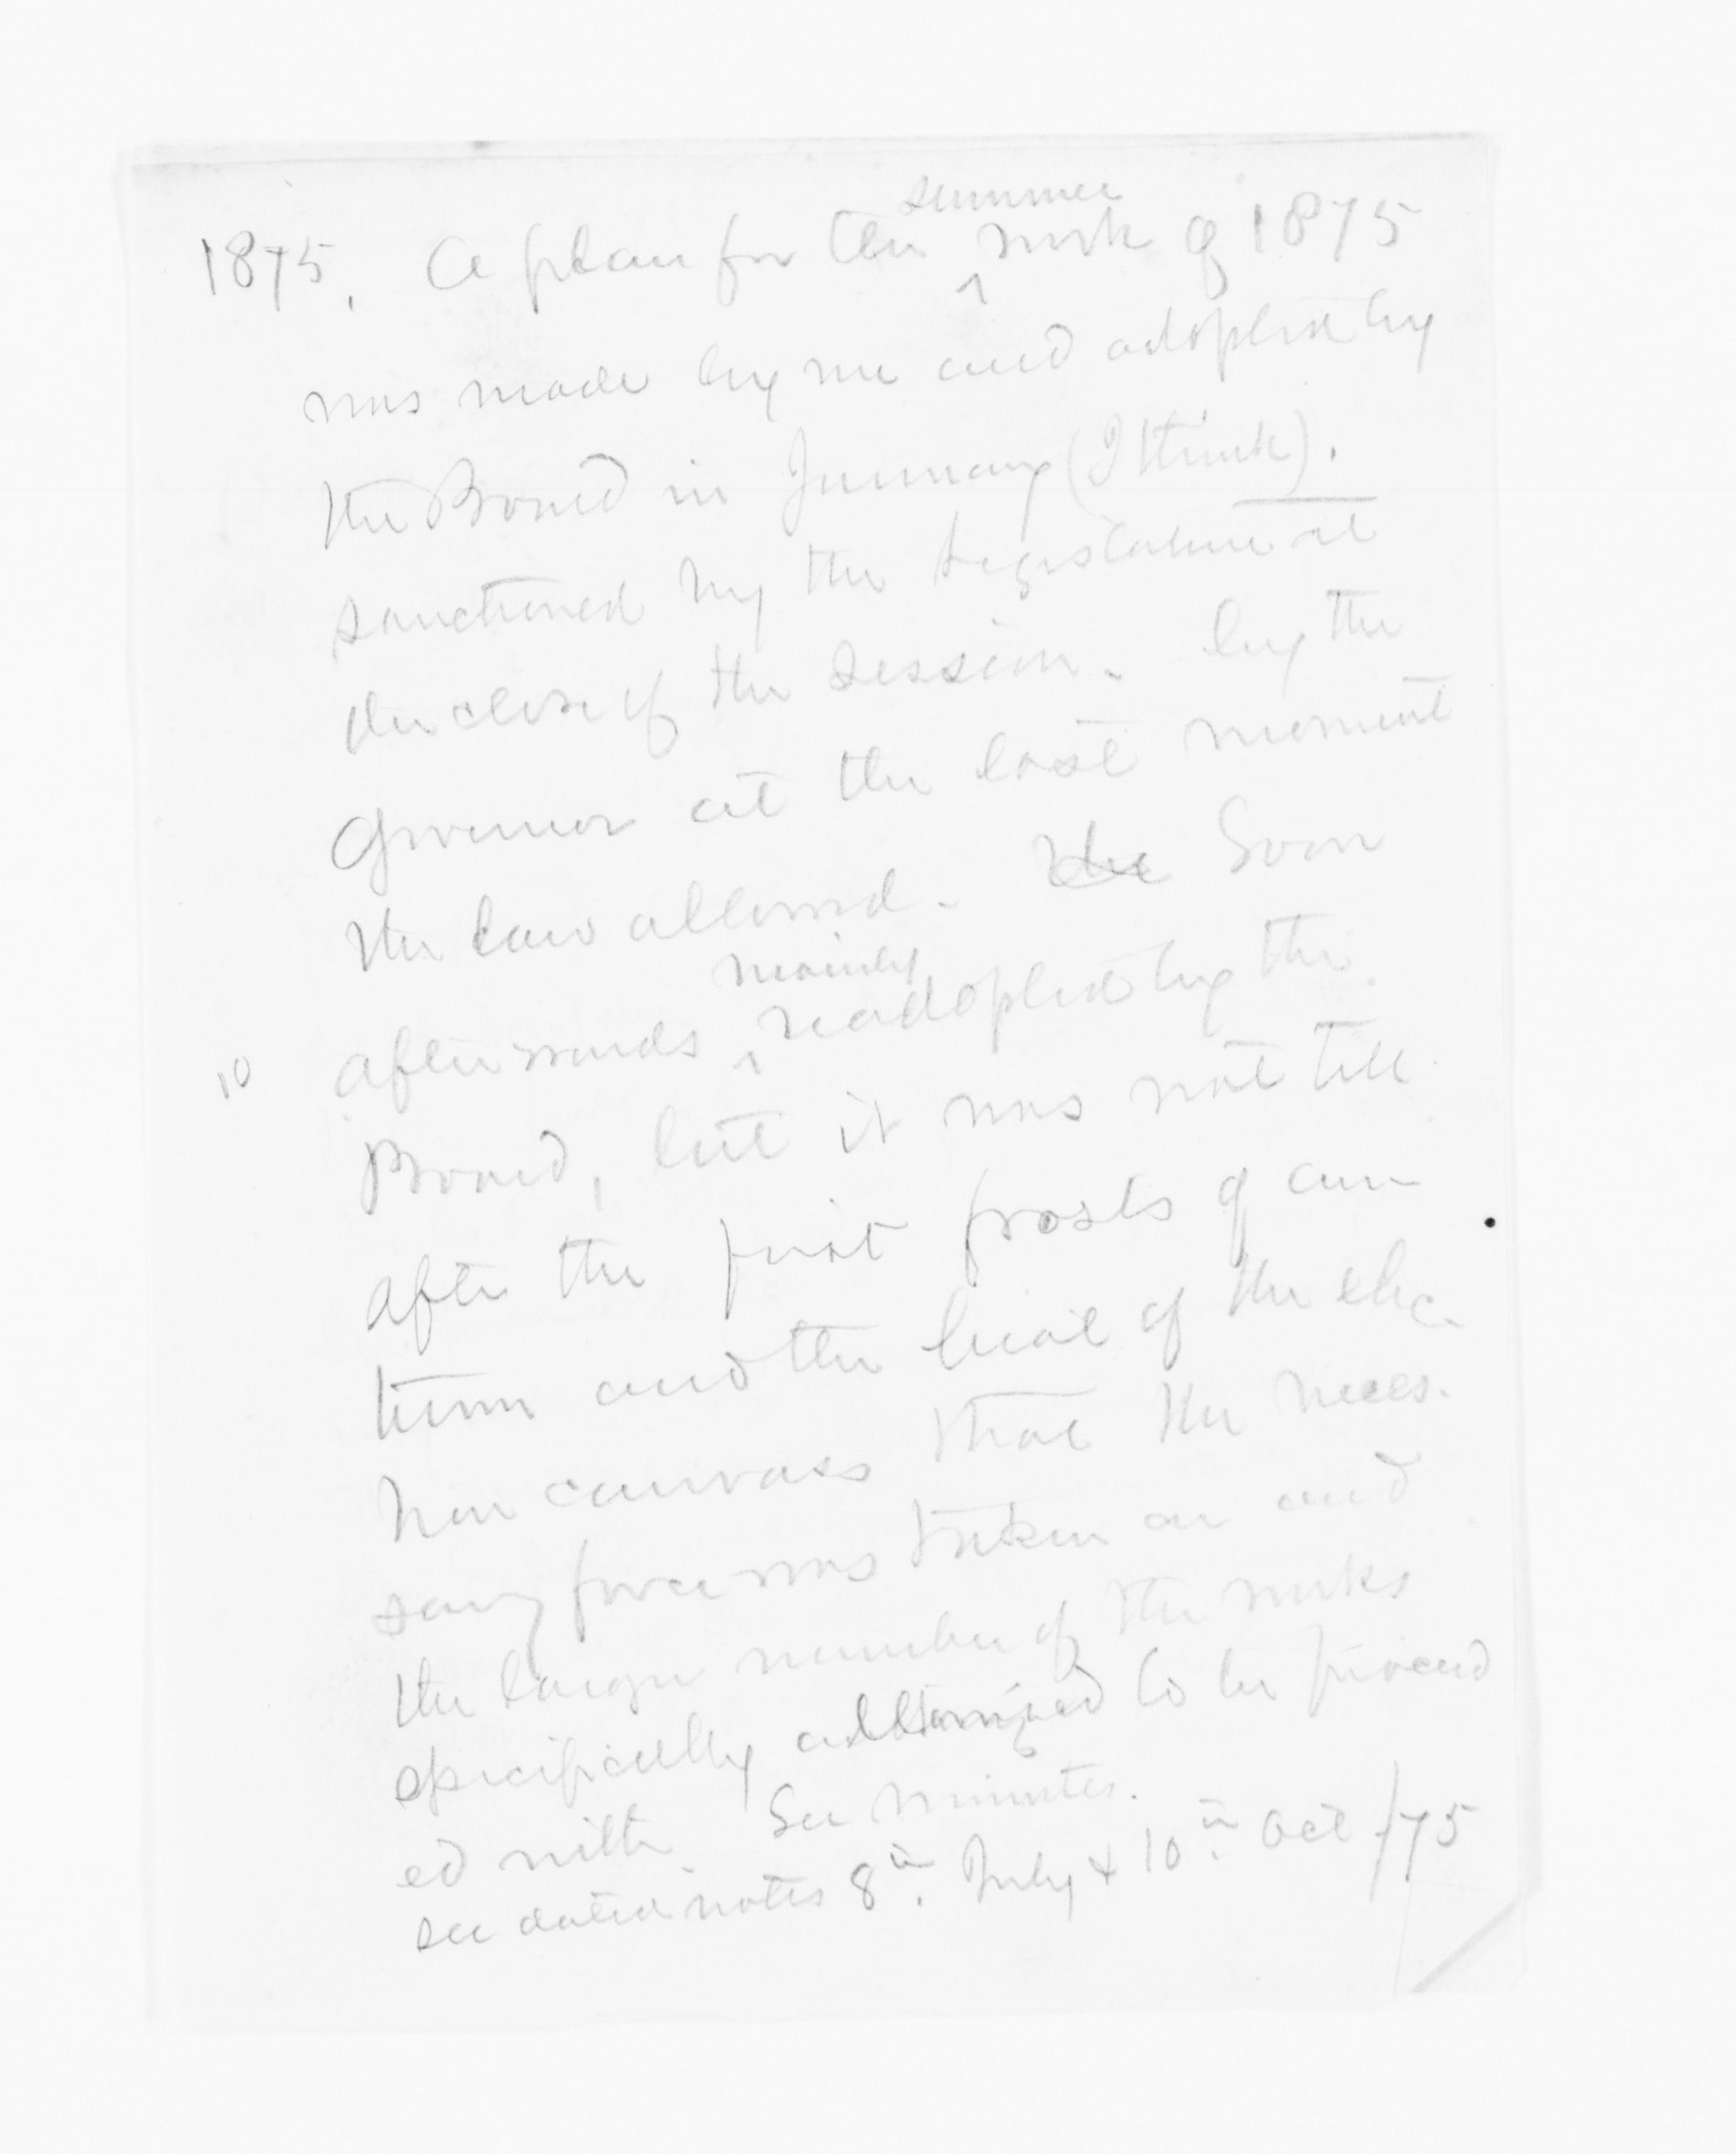 summer
1875. A plan for the ^ work of 1875
was made by me and adopted by
the Board in January (I think).
sanctioned by the Legislature at
the close of the session. by the
Governor at the last moment
the law allowed. the Soon
mainly
afterwards ^ readopted by the
10
Board, but it was not till
after the first frosts of au-
tumn and the heat of the elec-
tion canvass that the neces-
sary force was taken on and
the larger number of the works
specifically authorized to be proceed
ed with. See minutes.
see dated notes 8th. July & 10th. Oct /75